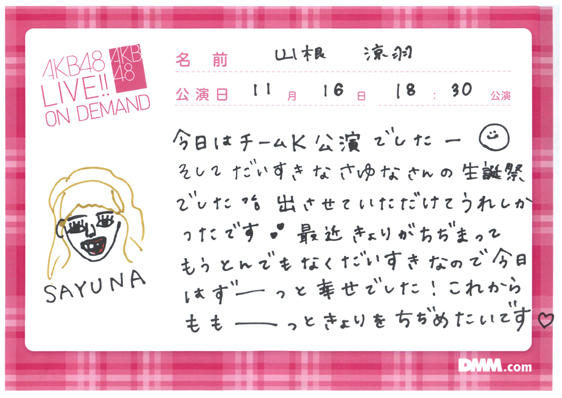 AKB48
LIVE!!
ON DEMAND
AKB
48
名前 山根 涼羽
公演日 11月 16日 18:30 公演
今日はチームK公演でしたー
そしてだいすきなさゆなさんの生誕祭
でした 出させていただけてうれしか
ったです 最近きょりがちぢまって
もうとんでもなくだいすきなので今日
はずーっと幸せでした！これから
もも――っときょりをちぢめたいです♡
SAYUNA
DMM.com